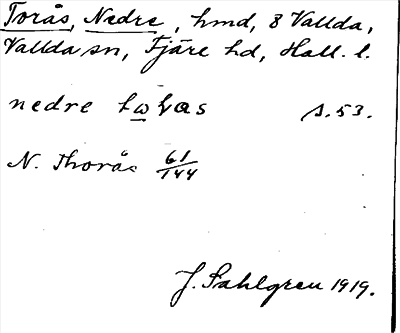 Torås, Nedre, hmd, 8 Vallda,
Vallda sn, Fjäre hd, Hall. l.
nedre s. 53.
N. Thorås 61/144
J. Sahlgren 1919.